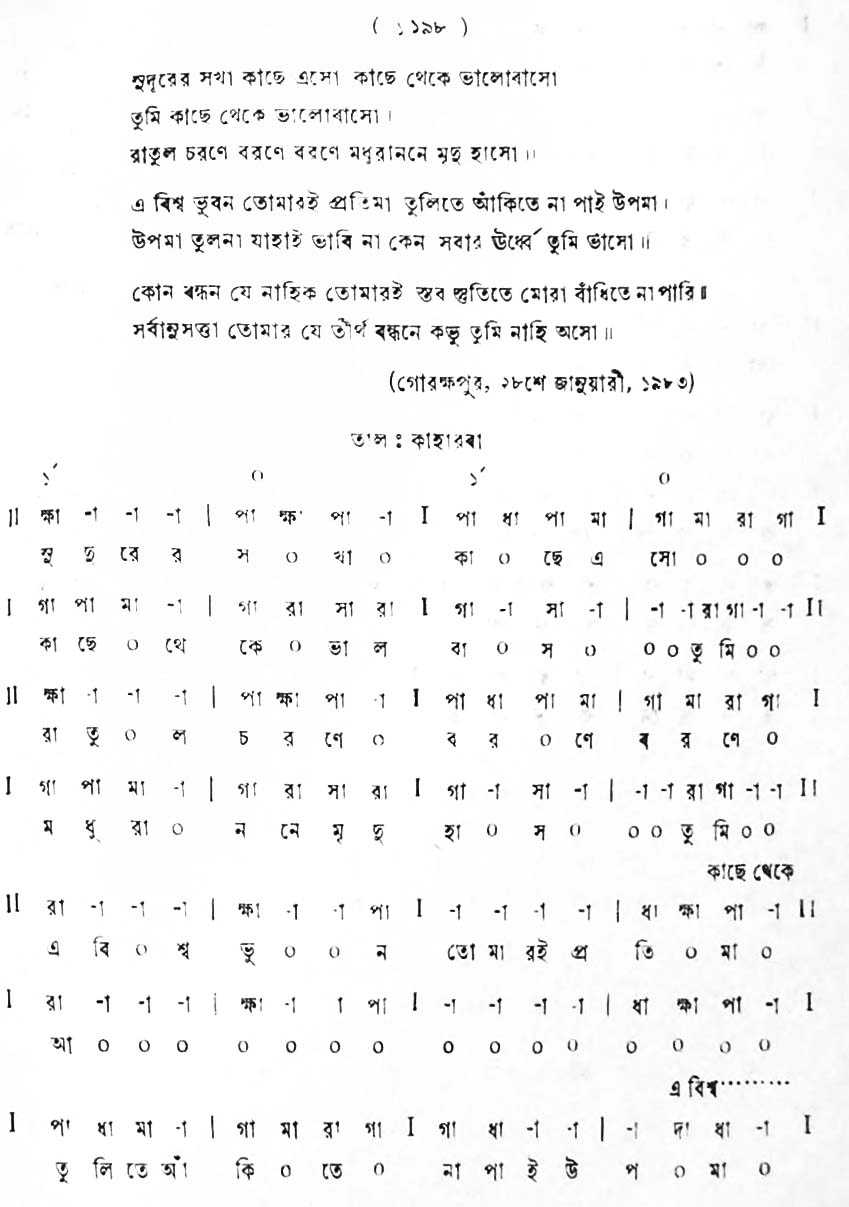 ( ১১৯৮ )
সুদূরের সখা কাছে এসো কাছে থেকে ভালোবাসো
তুমি কাছে থেকে ভালোবাসো।
রাতুল চরণে বরণে বরণে মধুরাননে মৃদু হাসো॥
এ বিশ্ব ভুবন তোমারই প্রতিমা তুলিতে আঁকিতে না পাই উপমা।
উপমা তুলনা যাহাই ভাবি না কেন সবার ঊর্ধ্বে তুমি ভাসো॥
কোন বন্ধন যে নাহিক তোমারই স্তব স্তুতিতে মোরা বাঁধিতে না পারি॥
সর্বানুসত্তা তোমার যে তীর্থ বন্ধনে কভু তুমি নাহি অসো॥
(গোরক্ষপুর, ২৮শে জানুয়ারী, ১৯৮৩)
তাল : কাহারবা
১´ ০ ১´ ০
II ক্ষা -া -া -া | পা ক্ষা পা -া I পা ধা পা মা | গা মা রা গা I
সু দু রে র স ০ খা ০ কা ০ ছে এ সো ০ ০ ০
I গা পা মা -া | গা রা সা রা I গা -া সা -া | -া -া রা গা -া -া II
কা ছে ০ থে কে ০ ভা ল বা ০ স ০ ০ ০ তু মি ০ ০
II ক্ষা -া -া -া | পা ক্ষা পা -া I পা ধা পা মা | গা মা রা গা I
রা তু ০ ল চ র ণে ০ ব র ০ ণে ব র ণে ০
I গা পা মা -া | গা রা সা রা I গা -া সা -া | -া -া রা গা -া -া II
ম ধু রা ০ ন নে মৃ দু হা ০ স ০ ০ ০ তু মি ০ ০
কাছে থেকে
II রা -া -া -া | ক্ষা -া -া পা I -া -া -া -া | ধা ক্ষা পা -া II
এ বি ০ শ্ব ভু ০ ০ ন তো মা রই প্র তি ০ মা ০
I রা -া -া -া | ক্ষা -া া পা I -া -া -া -া | ধা ক্ষা পা -া I
আ ০ ০ ০ ০ ০ ০ ০ ০ ০ ০ ০ ০ ০ ০ ০
এ বিশ্ব·········
I পা ধা মা -া | গা মা রা গা I গা ধা -া -া | -া দা ধা -া I
তু লি তে আঁ কি ০ তে ০ না পা ই উ প ০ মা ০